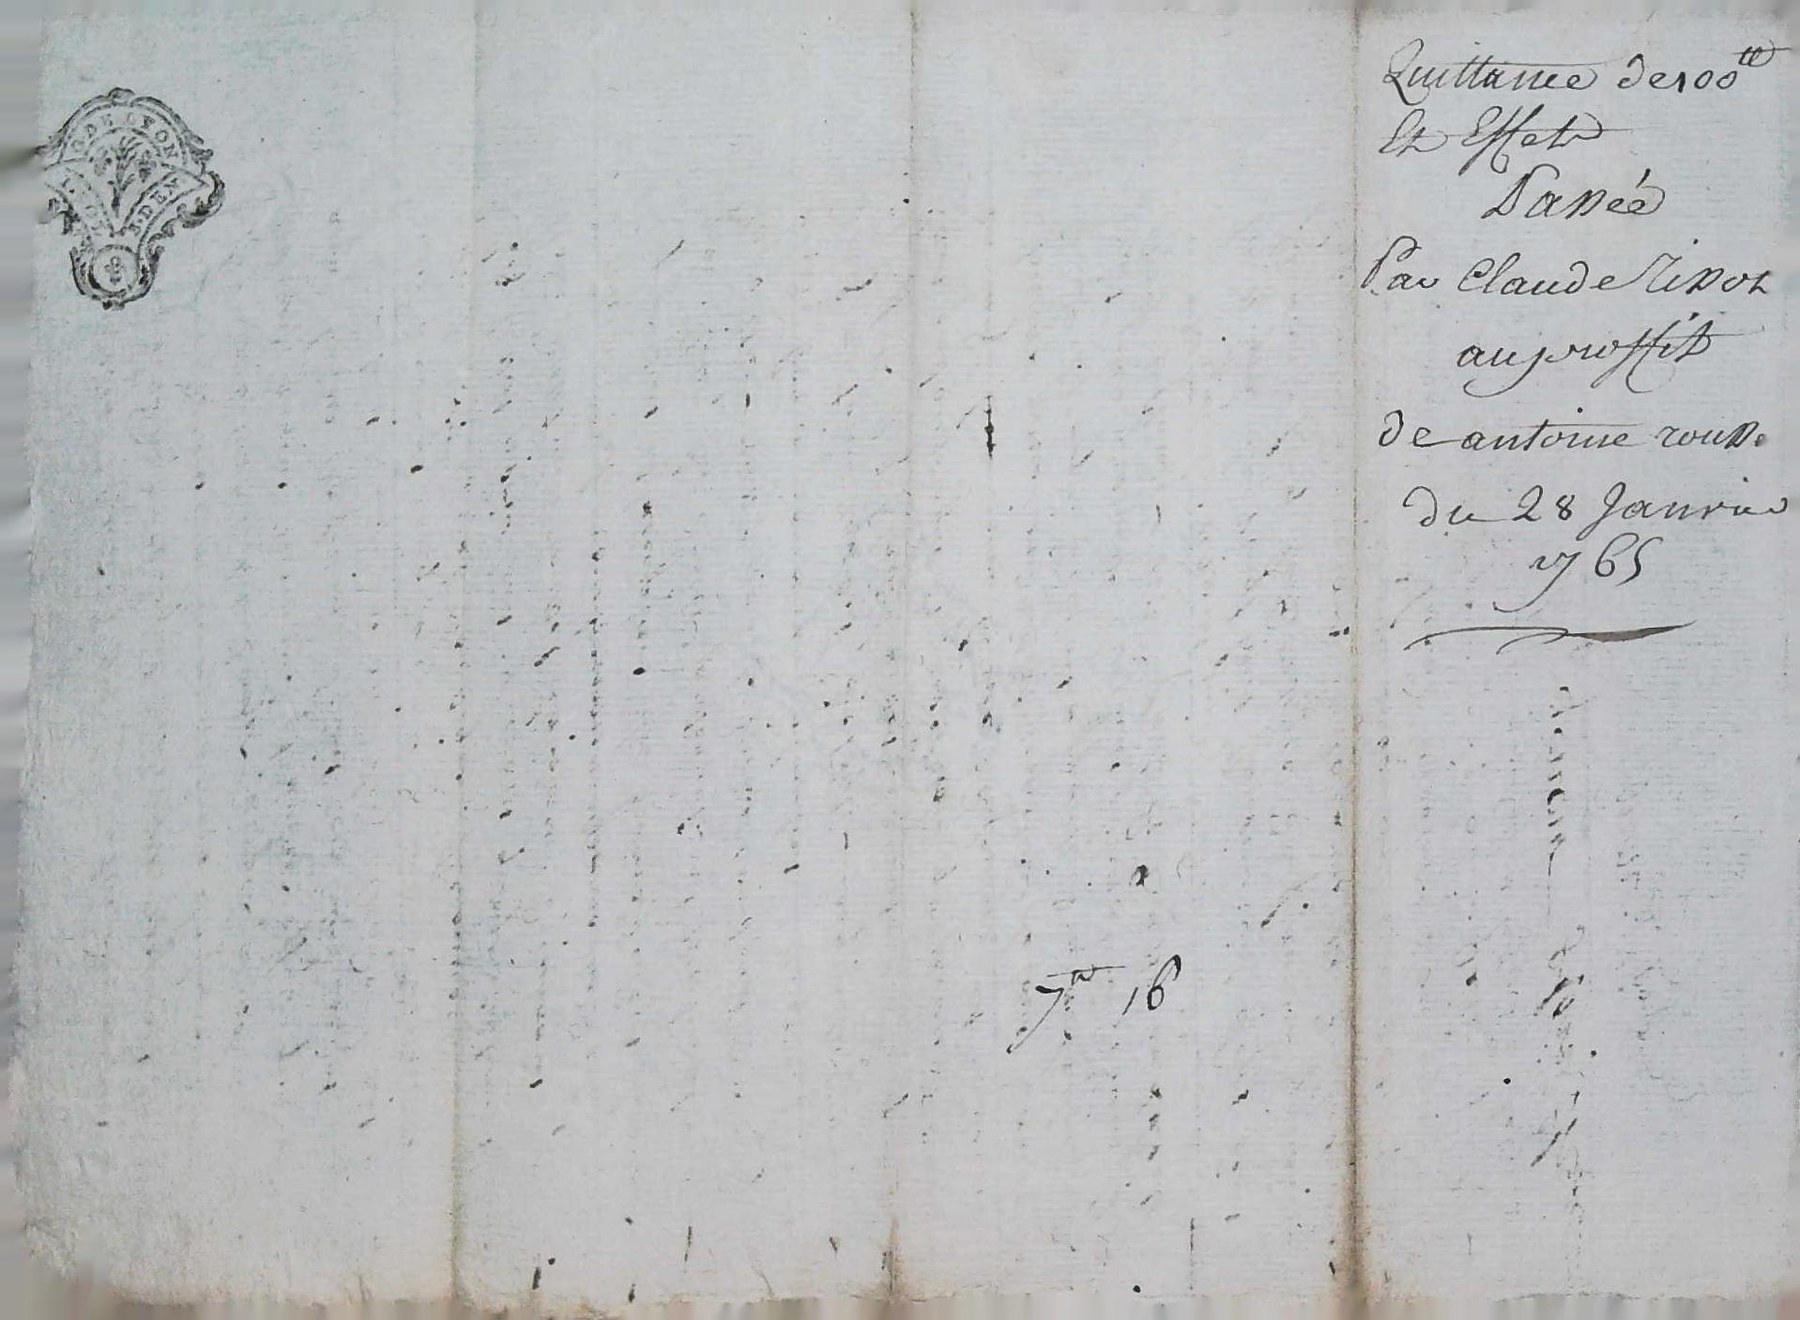 G. DE LYON
DEN
Quittance de 100ᵗᵗ
Et Effets
Passée
Par Claude Tissot
au proffit
de antoine rousse
du 28 Janvier
1765
7 16